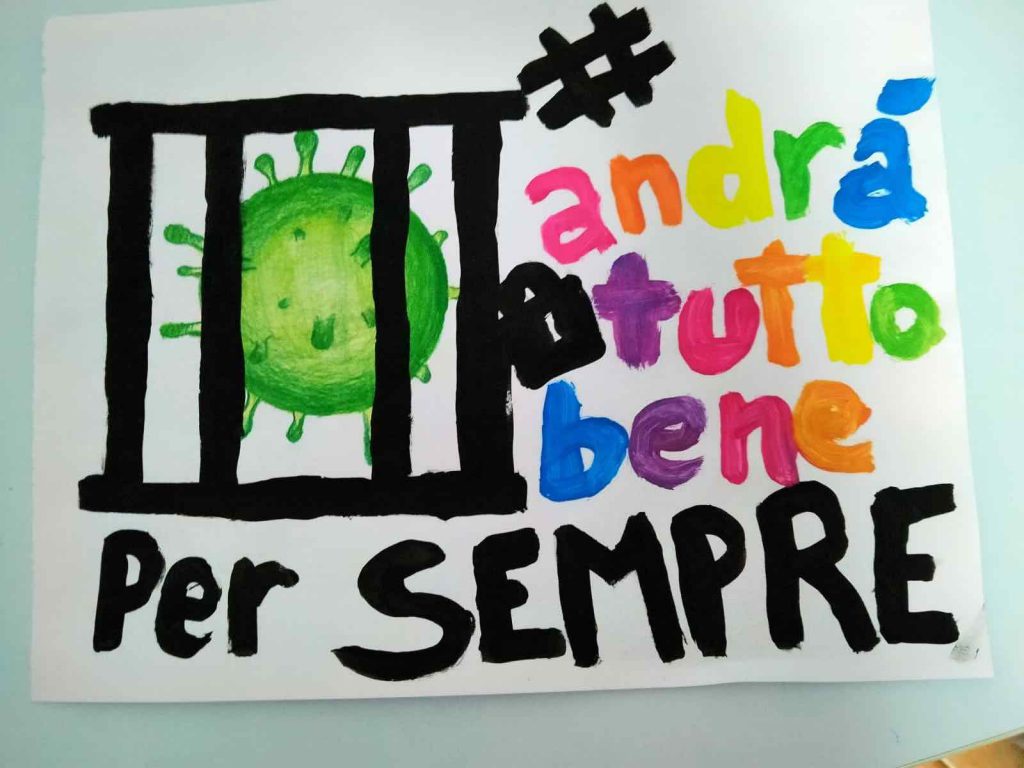 #andrá
tutto
bene
Per SEMPRE